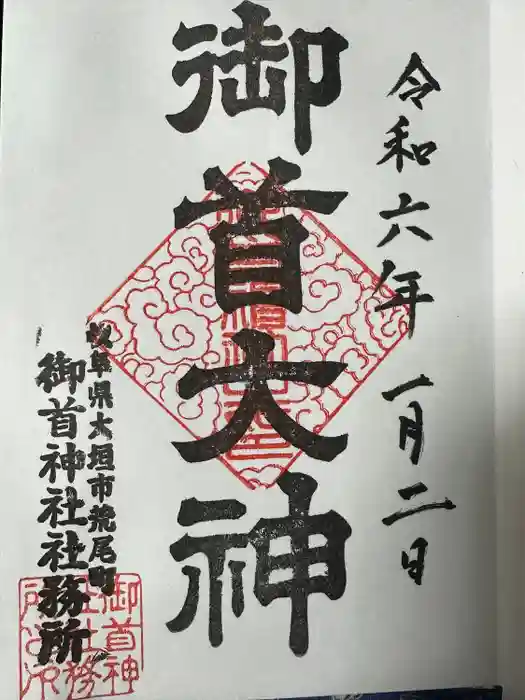 令和六年 一月二日
御首大神
岐阜県大垣市荒尾町
御首神社社務所
御首神
社社務
所之印